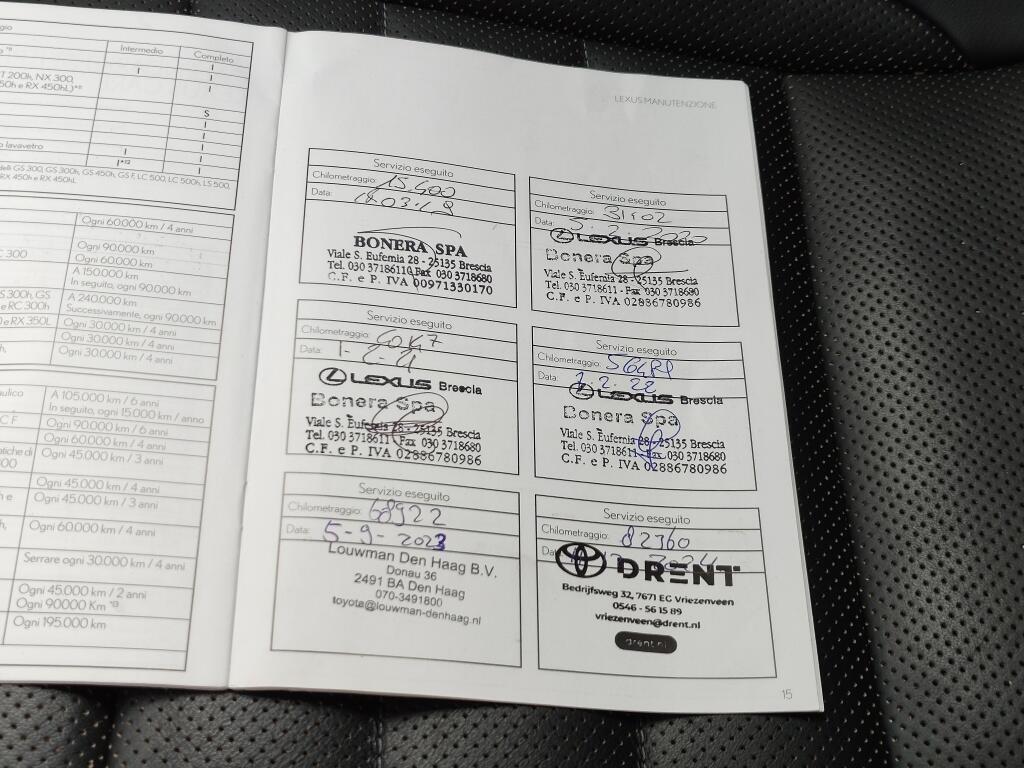 Intermedio Completo
I
T 200h, NX 300, I I
50h e RX 450hL)*⁸
S
I
I
o lavavetro I I
I*¹² I
delli GS 300, GS 300h, GS 450h, GS F, LC 500, LC 500h, LS 500,
RX 450h e RX 450hL
Ogni 60.000 km / 4 anni
Ogni 90.000 km
C 300 Ogni 60.000 km
A 150.000 km
In seguito, ogni 90.000 km
S 300h, GS A 240.000 km
e RC 300h Successivamente, ogni 90.000 km
0 e RX 350L Ogni 30.000 km / 4 anni
Ogni 30.000 km / 4 anni
Ogni 30.000 km / 4 anni
aulico A 105.000 km / 6 anni
In seguito, ogni 15.000 km / anno
C F Ogni 90.000 km / 6 anni
Ogni 60.000 km / 4 anni
atiche di Ogni 45.000 km / 3 anni
Ogni 45.000 km / 4 anni
Ogni 45.000 km / 3 anni
Ogni 60.000 km / 4 anni
Serrare ogni 30.000 km / 4 anni
Ogni 45.000 km / 2 anni
Ogni 90000 Km *¹³
Ogni 195.000 km
LEXUS MANUTENZIONE
Servizio eseguito
Chilometraggio: 15.400
Data:
BONERA SPA
Viale S. Eufemia 28 - 25135 Brescia
Tel. 030 3718611 Fax 030 3718680
C.F. e P. IVA 00971330170
Servizio eseguito
Chilometraggio:
Data: 5.2.2020
LEXUS Brescia
Bonera Spa
Viale S. Eufemia 28 - 25135 Brescia
Tel. 030 3718611 - Fax 030 3718680
C.F. e P. IVA 02886780986
Servizio eseguito
Chilometraggio:
Data:
LEXUS Brescia
Bonera Spa
Viale S. Eufemia 28 - 25135 Brescia
Tel. 030 3718611 Fax 030 3718680
C.F. e P. IVA 02886780986
Servizio eseguito
Chilometraggio:
Data: 2.2.22
LEXUS Brescia
Bonera Spa
Viale S. Eufemia 28 - 25135 Brescia
Tel. 030 3718611 Fax 030 3718680
C.F. e P. IVA 02886780986
Servizio eseguito
Chilometraggio: 68922
Data: 5-9-2023
Louwman Den Haag B.V.
Donau 36
2491 BA Den Haag
070-3491800
toyota@louwman-denhaag.nl
Servizio eseguito
Chilometraggio: 82760
DRENT
Bedrijfsweg 32, 7671 EC Vriezenveen
0546 - 56 15 89
vriezenveen@drent.nl
drent.nl
15